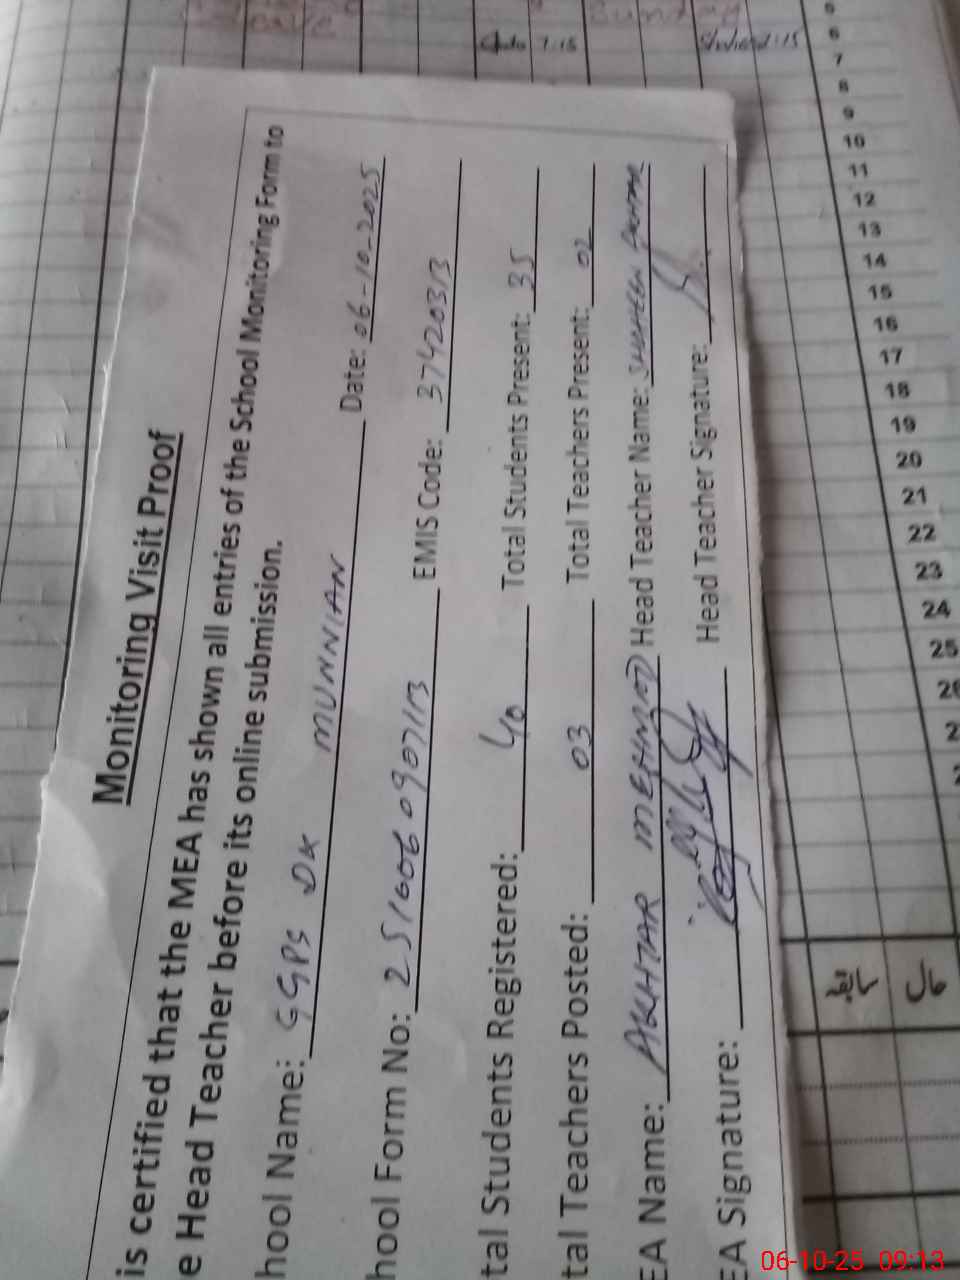 Monitoring Visit Proof
is certified that the MEA has shown all entries of the School Monitoring Form to
e Head Teacher before its online submission.
hool Name: GGPS DK MUNNIAN Date: 06-10-2025
hool Form No: EMIS Code: 37420313
tal Students Registered: 40 Total Students Present: 35
tal Teachers Posted: 03 Total Teachers Present: 02
EA Name: AKHTAR MEHMOOD Head Teacher Name: SHAHEEN AKHTAR
EA Signature: Head Teacher Signature:
Sunday
7:15
5
6
7
8
9
10
11
12
13
14
15
16
17
18
19
20
21
22
23
24
25
26
2
سابقہ
حال
06-10-25 09:13